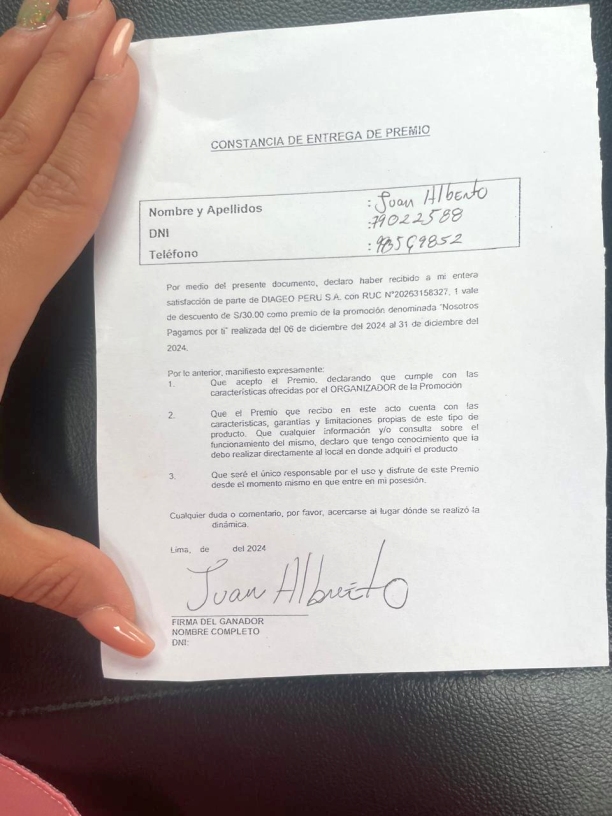 CONSTANCIA DE ENTREGA DE PREMIO
Nombre y Apellidos : Juan Alberto
DNI : 79022588
Teléfono :
Por medio del presente documento, declaro haber recibido a mi entera
satisfacción de parte de DIAGEO PERU S.A. con RUC N°20263158327, 1 vale
de descuento de S/30.00 como premio de la promoción denominada "Nosotros
Pagamos por ti" realizada del 06 de diciembre del 2024 al 31 de diciembre del
2024.
Por lo anterior, manifiesto expresamente:
1. Que acepto el Premio, declarando que cumple con las
características ofrecidas por el ORGANIZADOR de la Promoción
2. Que el Premio que recibo en este acto cuenta con las
características, garantías y limitaciones propias de este tipo de
producto. Que cualquier información y/o consulta sobre el
funcionamiento del mismo, declaro que tengo conocimiento que la
debo realizar directamente al local en donde adquirí el producto
3. Que seré el único responsable por el uso y disfrute de este Premio
desde el momento mismo en que entre en mi posesión.
Cualquier duda o comentario, por favor, acercarse al lugar dónde se realizó la
dinámica.
Lima, de del 2024
Juan Alberto
FIRMA DEL GANADOR
NOMBRE COMPLETO
DNI: